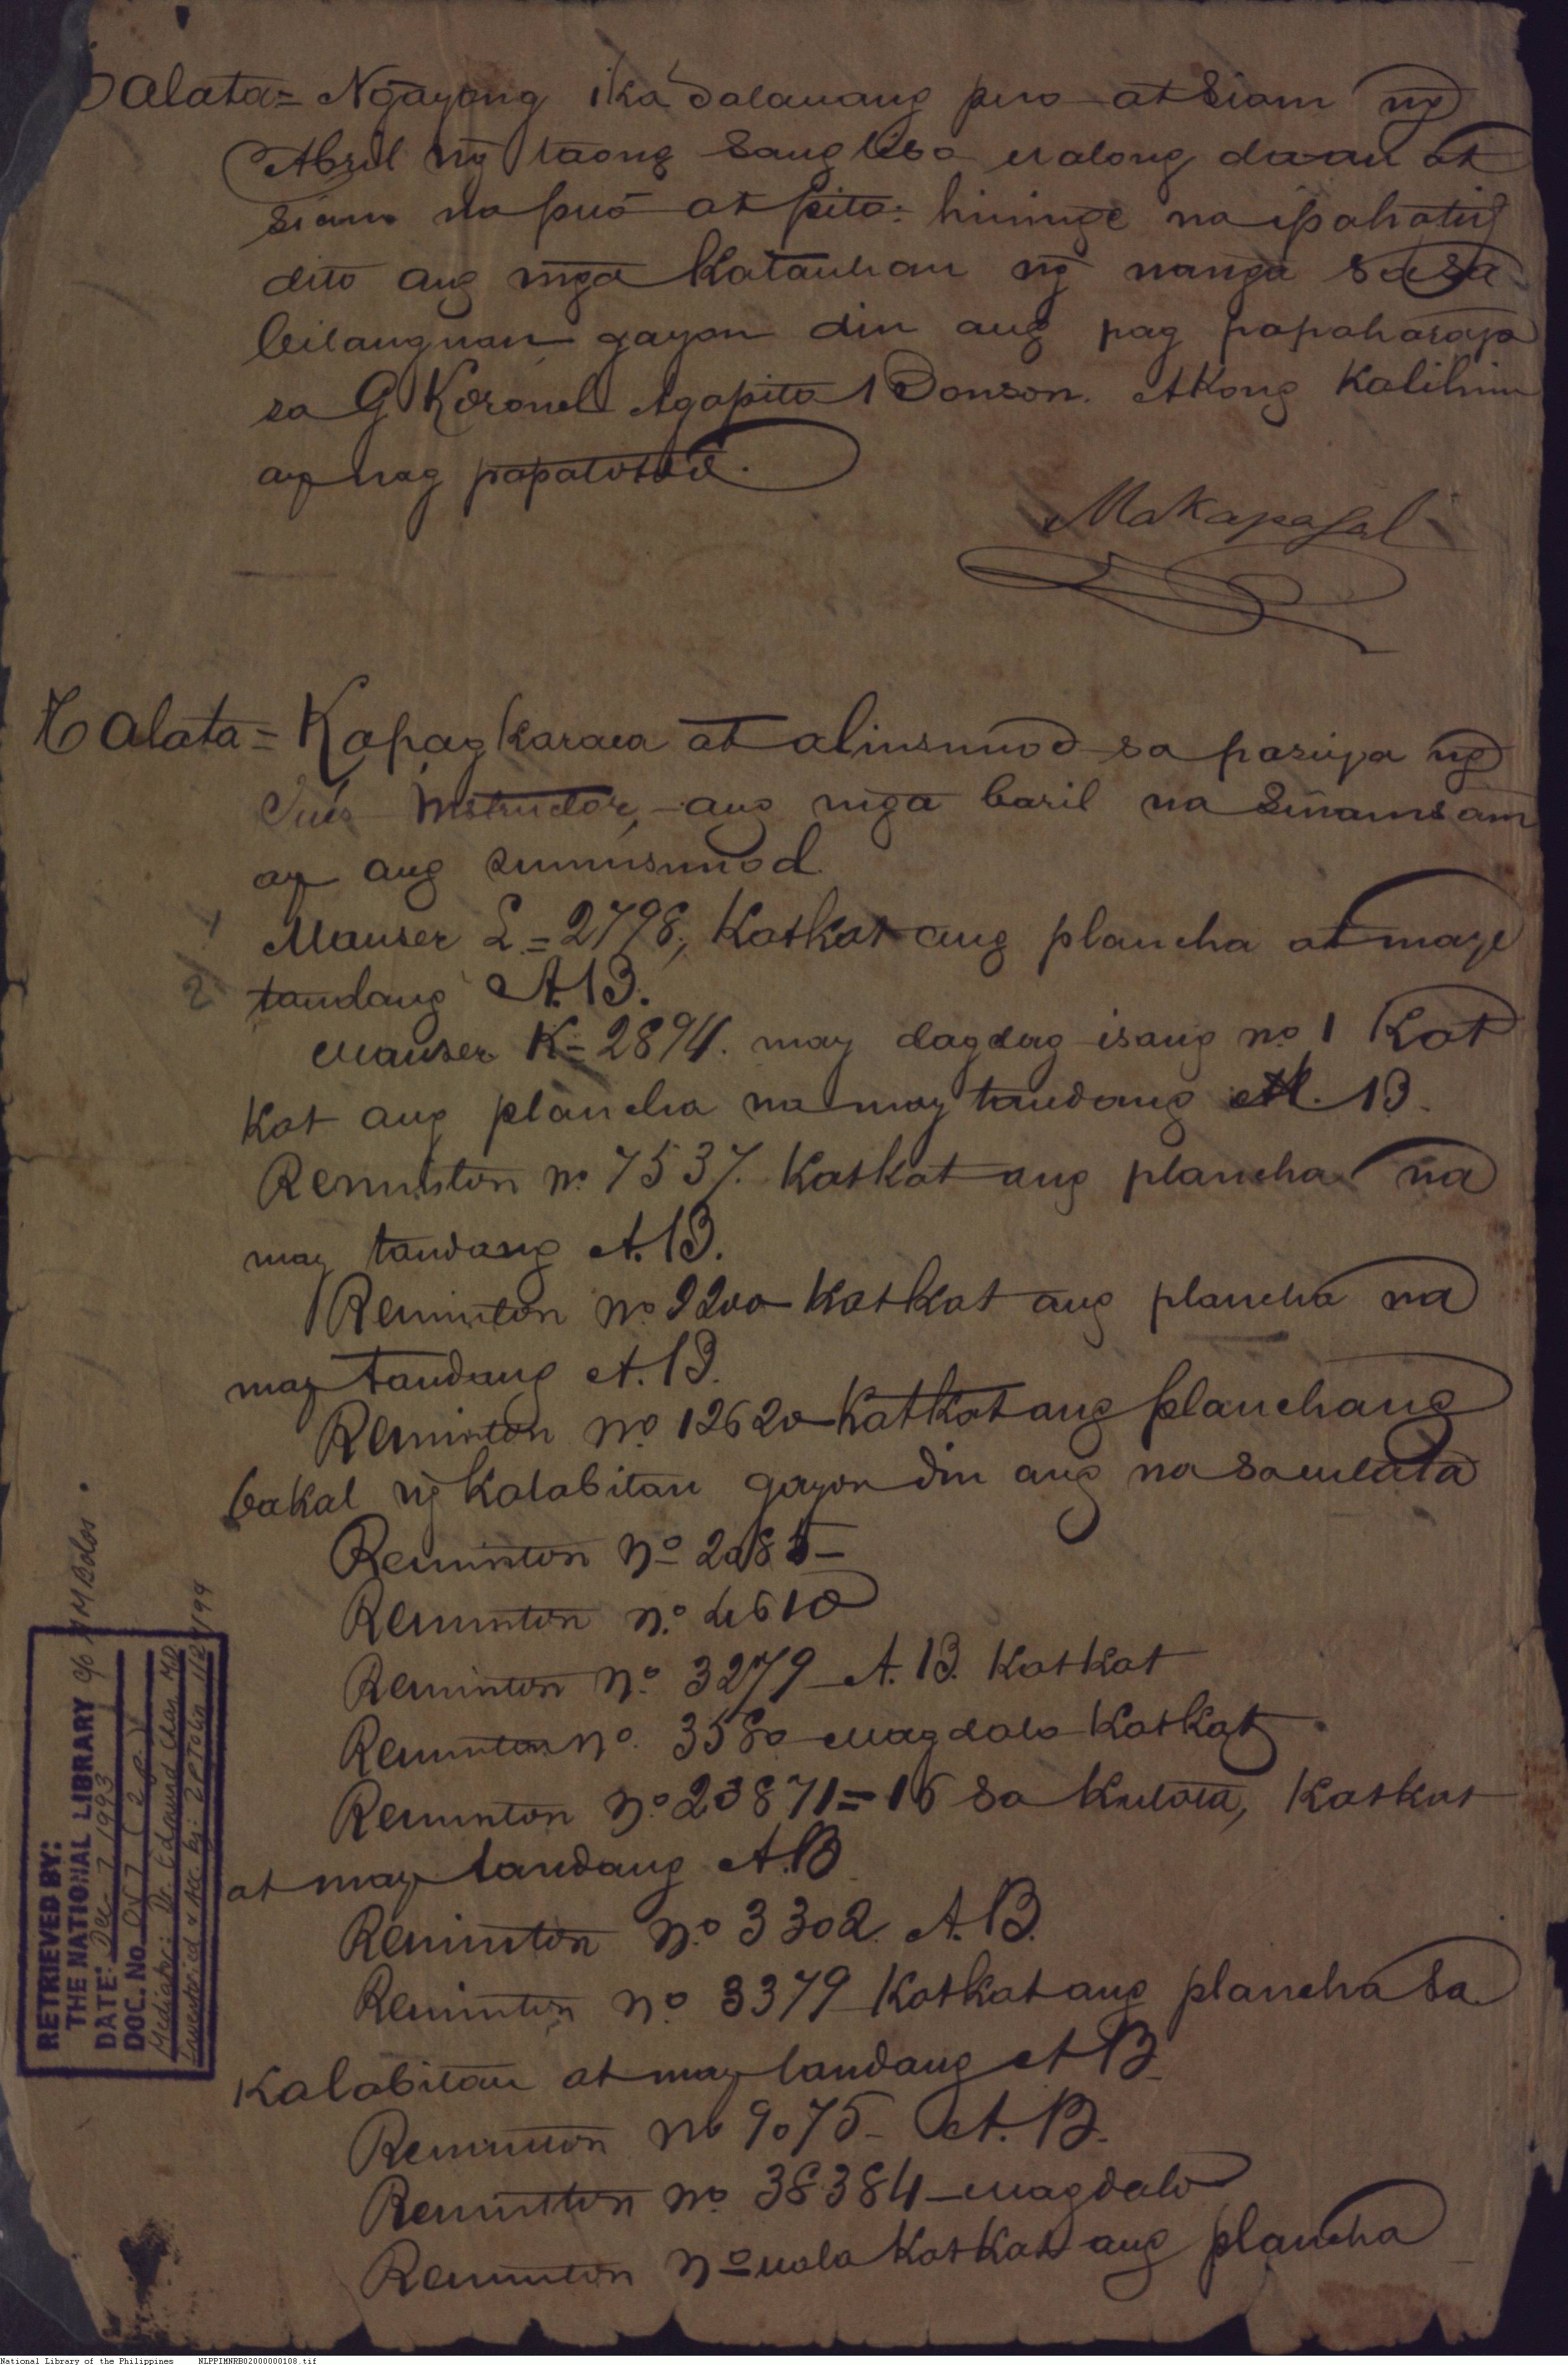 Talata= Ngayong ika dalauang puo at siam ng
Abril ng taong sang libo ualong daan at
siam na puo at pito: hininge na ipahatid
dito ang mga katauhan ng manga sa sa
bilanguan gayon din ang pag papaharap
sa G Koronel Agapito Bonson. Akong Kalihim
ay nag papatotoo.
Makapagal
Talata= Kapagkaraca at alinsunod sa pasiya ng
Jues Instructor, ang mga baril na sinamsam
ay ang sumusunod.
1
Mauser L.=2798; Katkat ang plancha at may
2 tandang A.B.
Mauser K=2894. may dagdag isang no. 1 Kat
kat ang plancha na may tandang A.B.
Reminton no. 7537. Katkat ang plancha na
may tandang A.B.
Reminton no. 2200 Katkat ang plancha na
may tandang A.B.
Reminton no. 12620 Katkat ang planchang
bakal ng kalabitan gayon din ang na sa culata
Reminton no.
Reminton no. 4610
Reminton no. 3279 A.B. Katkat
Reminton no. 3580 Magdalo Katkat
Reminton no. 23871=16 sa kulata, Katkat
at may tandang A.B
Reminton no. 3302. A.B.
Reminton no. 3379 Katkat ang plancha sa
kalabitan at may tandang A B.
Reminton no 9075- A.B.
Reminton no. 38384-Magdalo
Reminton no uala Katkat ang plancha
RETRIEVED BY:
THE NATIONAL LIBRARY c/o M M Bolos.
DATE: Dec. 7 1993
DOC. No. (2 p.)
Mediator: Dr. Edmund
National Library of the Philippines NLPPIMNRB02000000108.tif